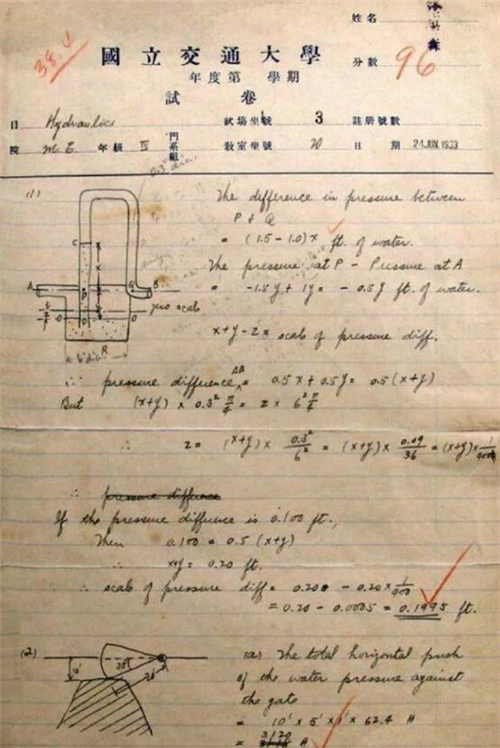 姓名
38.4
國立交通大學
分數 96
年度第 學期
試卷
目 Hydraulics 試場坐號 3 註册號數
院 M.E. 年級 IV 門系組 教室坐號 20 日期 24 JUN 1933
0.3" dia.
(1)
The difference in pressure between
P & Q
= (1.5 - 1.0) x ft. of water.
The pressure at P - Pressure at A
= -1.5y + 1y = -0.5y ft. of water.
C
A
P
Q
B
zero scale
R
6" dia
x+y-z = scale of pressure diff.
∴ pressure difference AB = 0.5x + 0.5y = 0.5(x+y)
But (x+y) × 0.3² π/4 = z × 6² π/4
∴ z = (x+y) × 0.3²/6² = (x+y) × 0.09/36 = (x+y) × 1/400
∴ pressure difference
If the pressure difference is 0.100 ft.,
Then 0.100 = 0.5 (x+y)
∴ x+y = 0.20 ft.
∴ scale of pressure diff = 0.200 - 0.20 × 1/400
= 0.20 - 0.0005 = 0.1995 ft.
(2)
10'
30°
20'
(a) The total horizontal push
of the water pressure against
the gate
= 10' × 5' × 1' × 62.4 #
= 3120 #